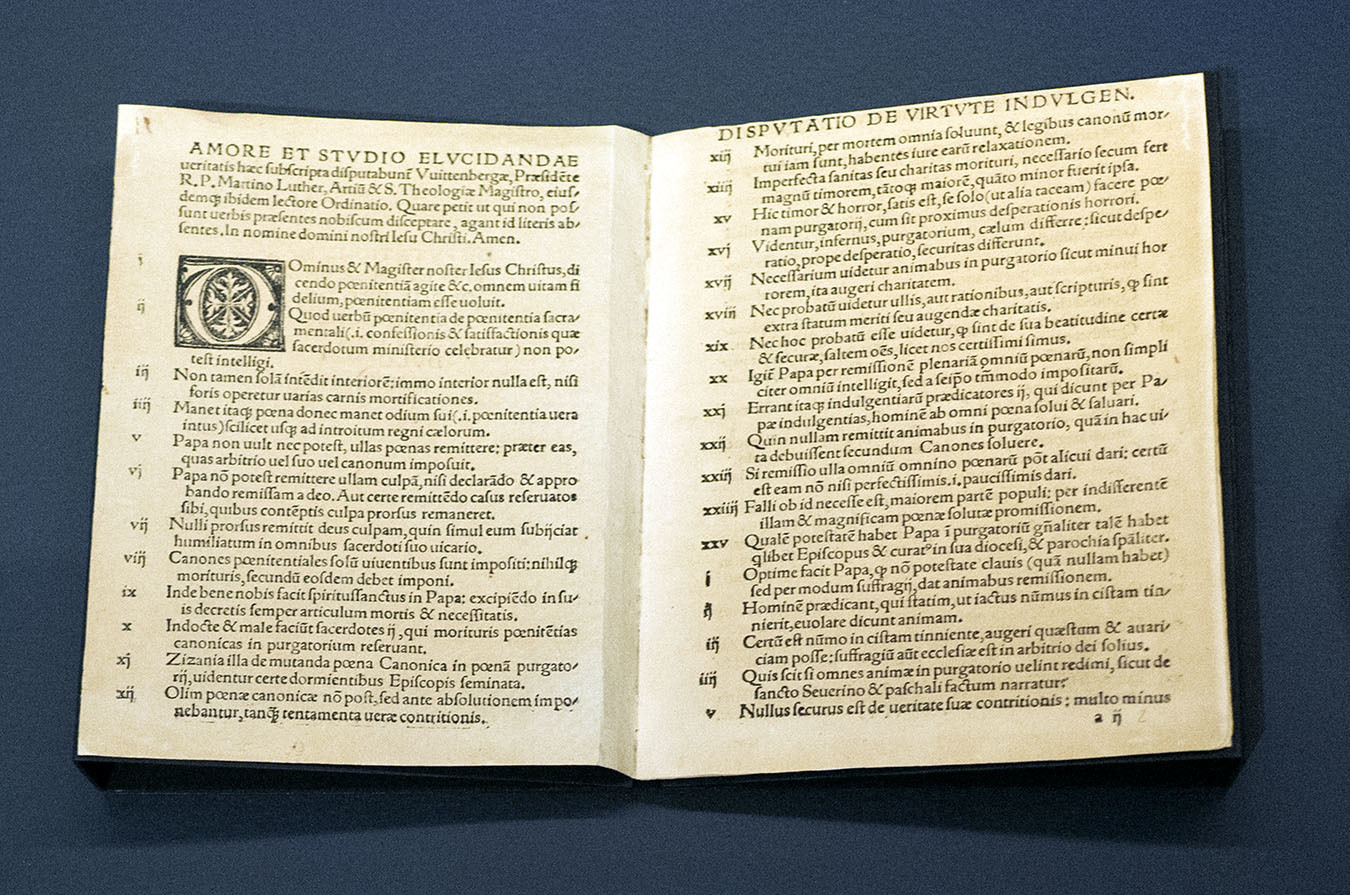 AMORE ET STVDIO ELVCIDANDAE
ueritatis hæc subscripta disputabunt̃ Vuittenbergæ, Præsidẽte
R. P. Martino Luther, Artiũ & S. Theologiæ Magistro, eius/
demq́ꝫ ibidem lectore Ordinatio. Quare petit ut qui non pos/
sunt uerbis præsentes nobiscum disceptare, agant id literis ab/
sentes. In nomine domini nostri Iesu Christi. Amen.
i Ominus & Magister noster Iesus Christus, di
cendo pœnitentiã agite &c, omnem uitam fi
delium, pœnitentiam esse uoluit.
ij Quod uerbũ pœnitentia de pœnitentia sacra/
mentali(.i. confessionis & satisfactionis quæ
sacerdotum ministerio celebratur) non po/
test intelligi.
iij Non tamen solã intẽdit interiorẽ: immo interior nulla est, nisi
foris operetur uarias carnis mortificationes.
iiij Manet itaqꝫ pœna donec manet odium sui(.i. pœnitentia uera
intus) scilicet usqꝫ ad introitum regni cælorum.
v Papa non uult nec potest, ullas pœnas remittere: præter eas,
quas arbitrio uel suo uel canonum imposuit.
vj Papa nõ potest remittere ullam culpã, nisi declarãdo & appro
bando remissam a deo. Aut certe remittẽdo casus reseruatos
sibi, quibus contẽptis culpa prorsus remaneret.
vij Nulli prorsus remittit deus culpam, quin simul eum subijciat
humiliatum in omnibus sacerdoti suo uicario.
viij Canones pœnitentiales solũ uiuentibus sunt impositi: nihilqꝫ
morituris, secundũ eosdem debet imponi.
ix Inde bene nobis facit spiritussanctus in Papa: excipiẽdo in su/
is decretis semper articulum mortis & necessitatis.
x Indocte & male faciũt sacerdotes ij, qui morituris pœnitẽtias
canonicas in purgatorium reseruant.
xj Zizania illa de mutanda pœna Canonica in pœnã purgato/
rij, uidentur certe dormientibus Episcopis seminata.
xij Olim pœnæ canonicæ nõ post, sed ante absolutionem impo/
nebantur, tanqꝫ tentamenta ueræ contritionis.
DISPVTATIO DE VIRTVTE INDVLGEN.
xiij Morituri, per mortem omnia soluunt, & legibus canonũ mor/
tui iam sunt, habentes iure earũ relaxationem.
xiiij Imperfecta sanitas seu charitas morituri, necessario secum fert
magnũ timorem, tãtoqꝫ maiorẽ, quãto minor fuerit ipsa.
xv Hic timor & horror, satis est, se solo (ut alia taceam) facere pœ/
nam purgatorij, cum sit proximus desperationis horrori.
xvj Videntur, infernus, purgatorium, cælum differre: sicut despe/
ratio, prope desperatio, securitas differunt.
xvij Necessarium uidetur animabus in purgatorio sicut minui hor
rorem, ita augeri charitatem.
xviij Nec probatũ uidetur ullis, aut rationibus, aut scripturis, ꝙ sint
extra statum meriti seu augendæ charitatis.
xix Nec hoc probatũ esse uidetur, ꝙ sint de sua beatitudine certæ
& securæ, saltem oẽs, licet nos certissimi simus.
xx Igit̃ Papa per remissionẽ plenariã omniũ pœnarũ, non simpli
citer omniũ intelligit, sed a seipo tm̃modo impositarũ.
xxj Errant itaqꝫ indulgentiarũ prædicatores ij, qui dicunt per Pa/
pæ indulgentias, hominẽ ab omni pœna solui & saluari.
xxij Quin nullam remittit animabus in purgatorio, quã in hac ui/
ta debuissent secundum Canones soluere.
xxiij Si remissio ulla omniũ omnino pœnarũ põt alicui dari: certũ
est eam nõ nisi perfectissimis .i. paucissimis dari.
xxiiij Falli ob id necesse est, maiorem partẽ populi: per indifferentẽ
illam & magnificam pœnæ solutæ promissionem.
xxv Qualẽ potestatẽ habet Papa ĩ purgatoriũ gñaliter talẽ habet
qlibet Episcopus & curatꝰ in sua diocesi, & parochia spãliter.
j Optime facit Papa, ꝙ nõ potestate clauis (quã nullam habet)
sed per modum suffragij, dat animabus remissionem.
ij Hominẽ prædicant, qui statim, ut iactus nũmus in cistam tin/
nierit, euolare dicunt animam.
iij Certũ est nũmo in cistam tinniente, augeri quæstum & auari/
ciam posse: suffragiũ aũt ecclesiæ est in arbitrio dei solius.
iiij Quis scit si omnes animæ in purgatorio uelint redimi, sicut de
sancto Seuerino & paschali factum narratur?
v Nullus securus est de ueritate suæ contritionis: multo minus
a ij 2